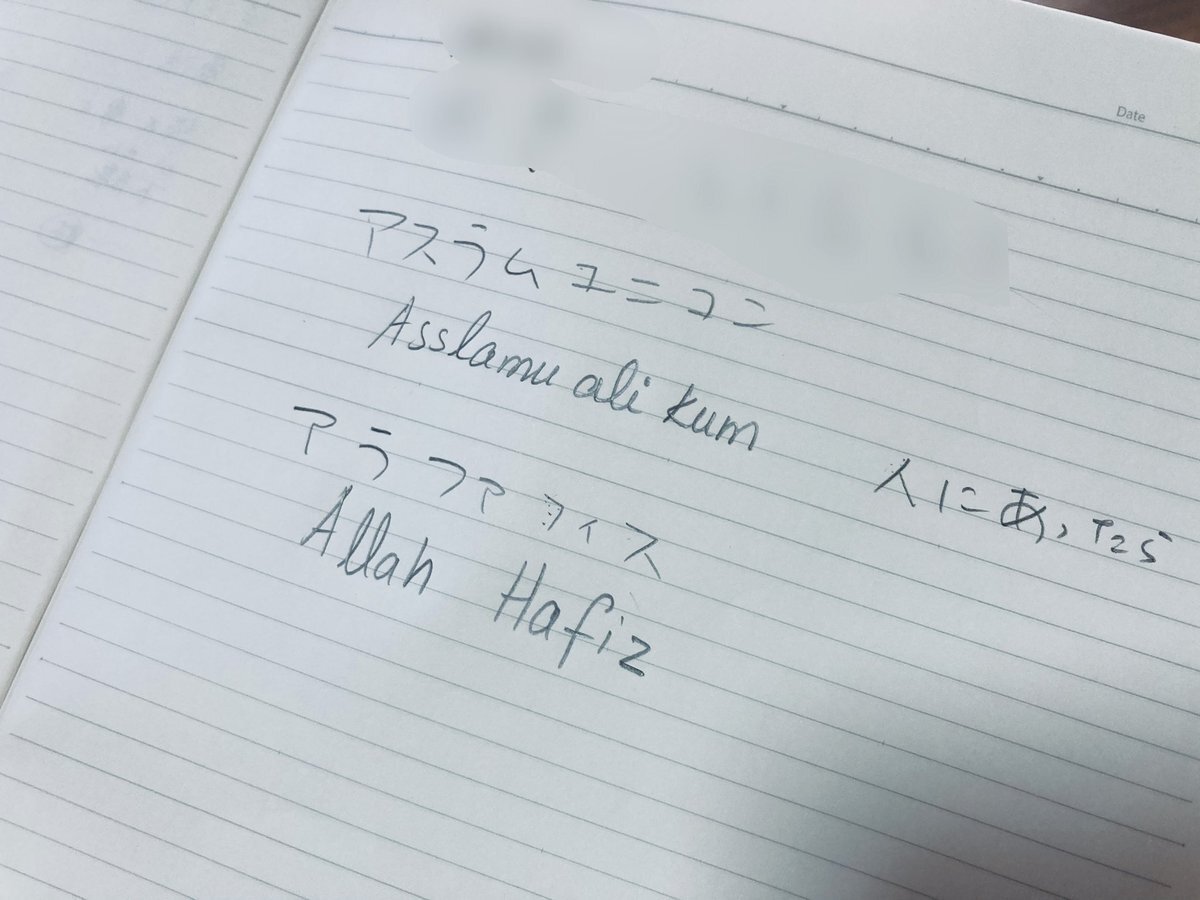 Date
アスラム ユニコン
Asslamu ali kum
人にあったら
アラファフィス
Allah Hafiz